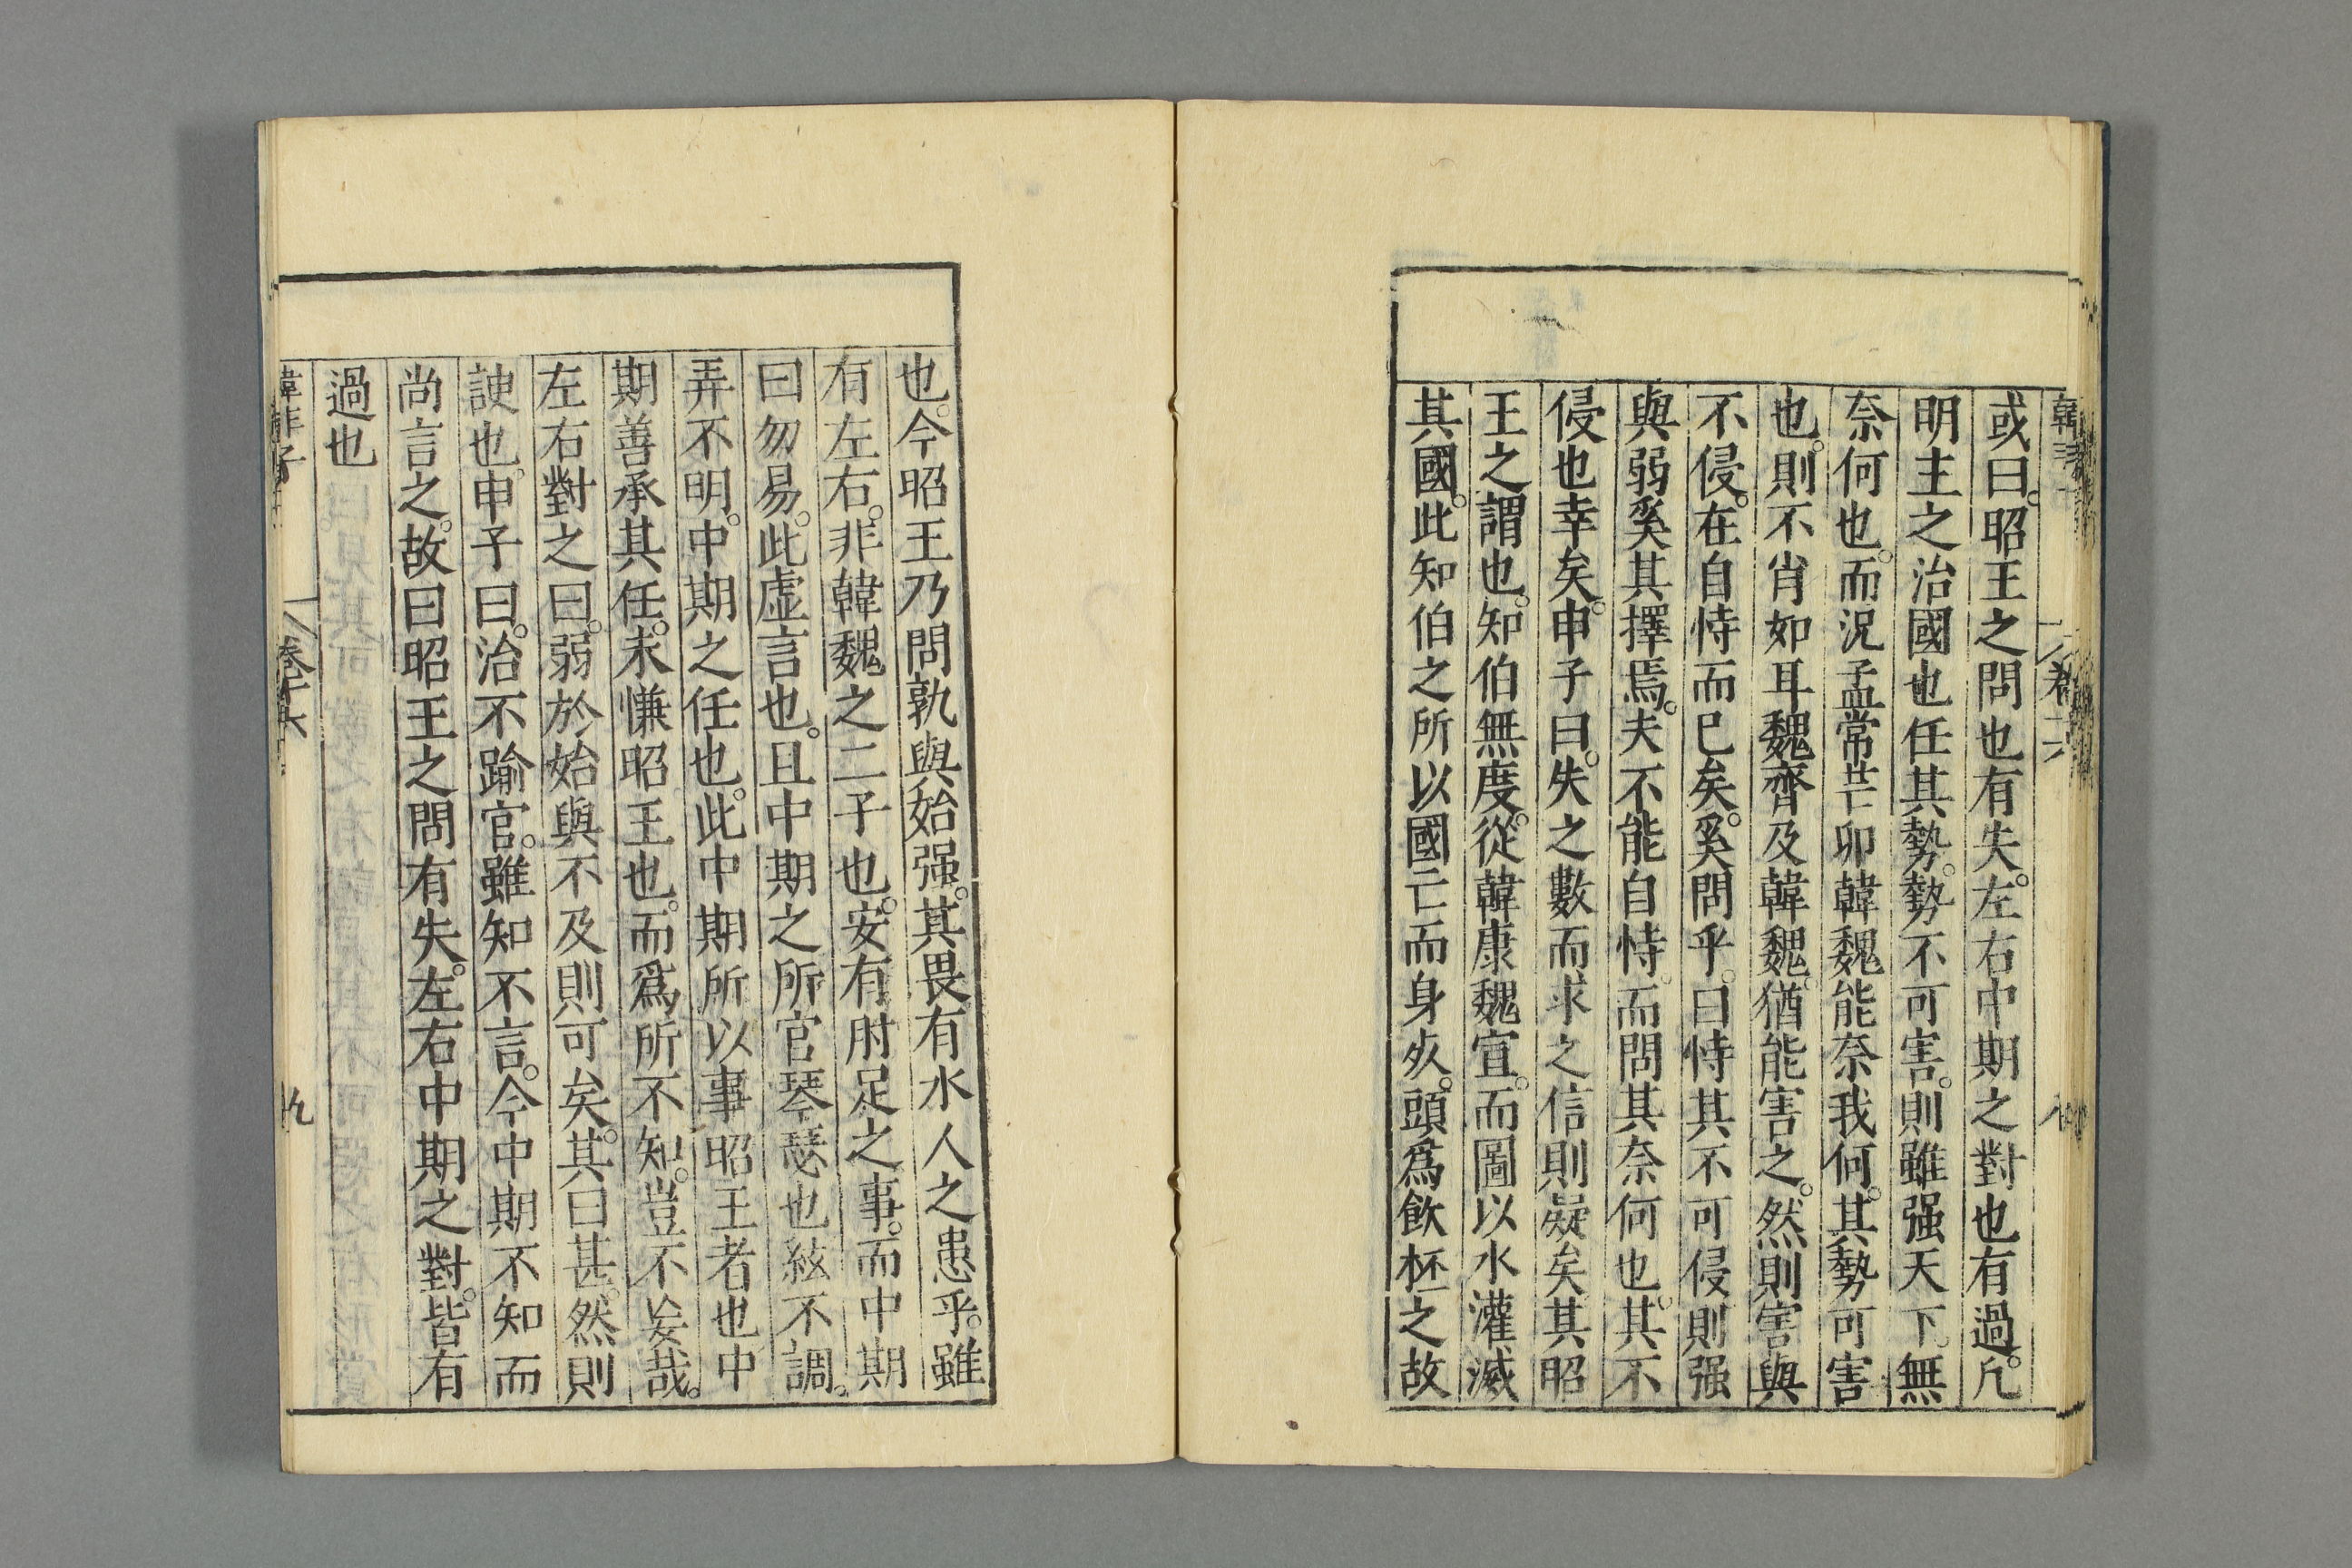 或曰。昭王之問也有失。左右中期之對也有過。凡
明主之治國也任其勢。勢不可害。則雖强天下。無
奈何也。而況孟常芒卯韓魏能奈我何。其勢可害
也。則不肖如耳魏齊及韓魏。猶能害之。然則害與
不侵。在自恃而已矣。奚問乎。曰恃其不可侵則强
與弱奚其擇焉。夫不能自恃。而問其奈何也。其不
侵也幸矣。申子曰。失之數而求之信則疑矣其昭
王之謂也。知伯無度。從韓康魏宣。而圖以水灌滅
其國。此知伯之所以國亡而身死。頭爲飮杯之故
也。今昭王乃問孰與始强。其畏有水人之患乎。雖
有左右。非韓魏之二子也。安有肘足之事。而中期
曰勿易。此虛言也。且中期之所官琴瑟也絃不調。
弄不明。中期之任也。此中期所以事昭王者也中
期善承其任。未慊昭王也。而爲所不知。豈不妄哉。
左右對之曰。弱於始與不及則可矣。其曰甚。然則
諛也。申子曰。治不踰官。雖知不言。今中期不知而
尚言之。故曰昭王之問有失。左右中期之對。皆有
過也
韓非子
卷十六
九